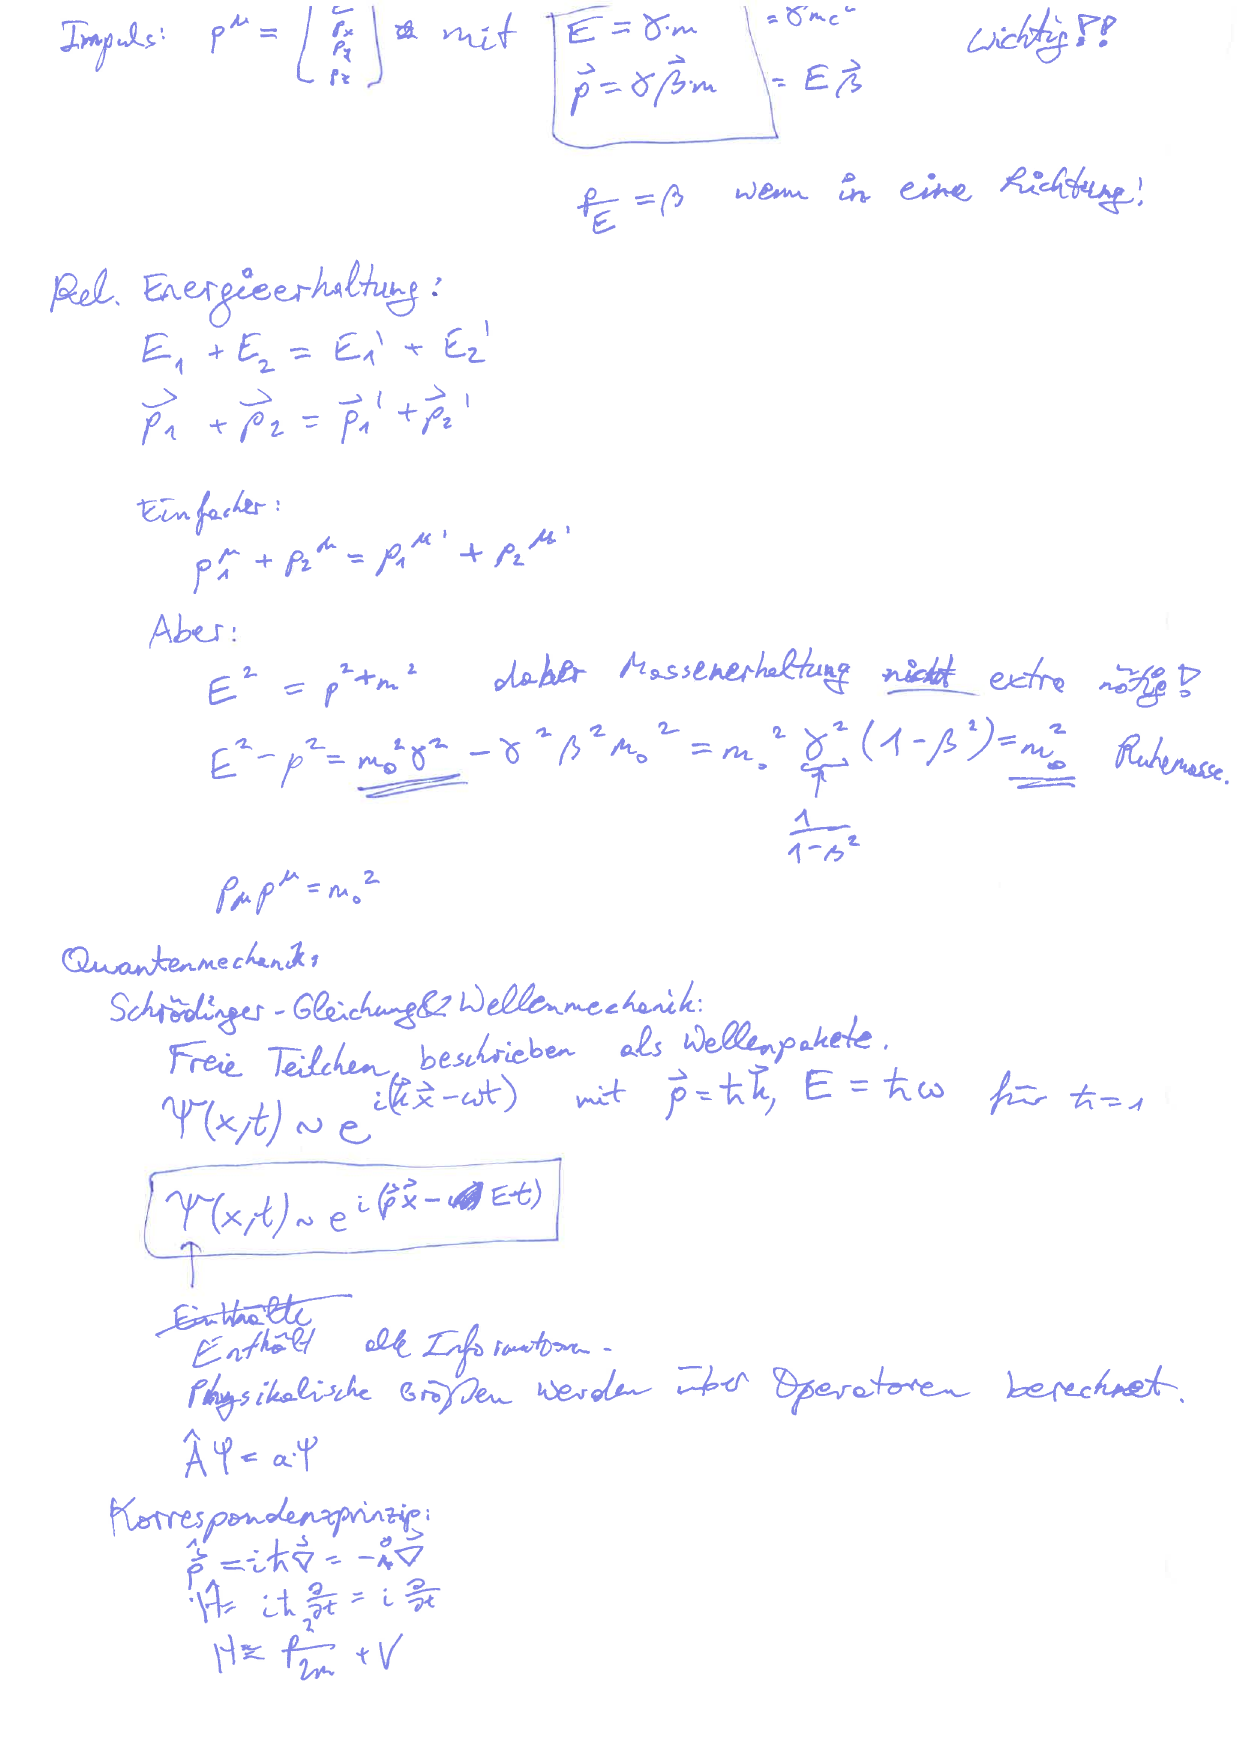 Impuls: p^μ = (p_x p_y p_z) mit E = γ·m = γmc² Wichtig!!
p⃗ = γβ⃗·m = Eβ⃗
p/E = β wenn in eine Richtung!
Rel. Energieerhaltung:
E₁ + E₂ = E₁' + E₂'
p⃗₁ + p⃗₂ = p⃗₁' + p⃗₂'
Einfacher:
p₁^μ + p₂^μ = p₁^μ' + p₂^μ'
Aber:
E² = p² + m² daher Massenerhaltung nicht extra nötig!
E² - p² = m₀²γ² - γ²β²m₀² = m₀²γ²(1-β²) = m₀² Ruhemasse.
1/(1-β²)
p_μ p^μ = m₀²
Quantenmechanik:
Schrödinger-Gleichung & Wellenmechanik:
Freie Teilchen beschrieben als Wellenpakete.
Ψ(x,t) ~ e^{i(k⃗x⃗-ωt)} mit p⃗ = ħk⃗, E = ħω für ħ=1
Ψ(x,t) ~ e^{i(p⃗x⃗ - Et)}
Enthält alle Informationen.
Physikalische Größen werden über Operatoren berechnet.
Âψ = a·ψ
Korrespondenzprinzip:
p̂⃗ = iħ∇⃗ = -i∇⃗
Ĥ = iħ ∂/∂t = i ∂/∂t
H = p²/2m + V